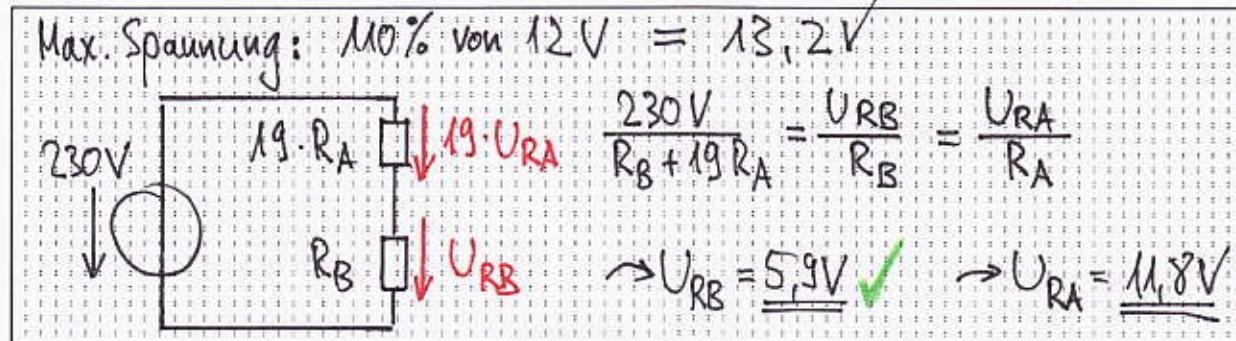 Max. Spannung: 110% von 12V = 13,2V
230V
19·R_A
19·U_RA
R_B
U_RB
230V / (R_B + 19 R_A) = U_RB / R_B = U_RA / R_A
→ U_RB = 5,9V ✓ → U_RA = 11,8V